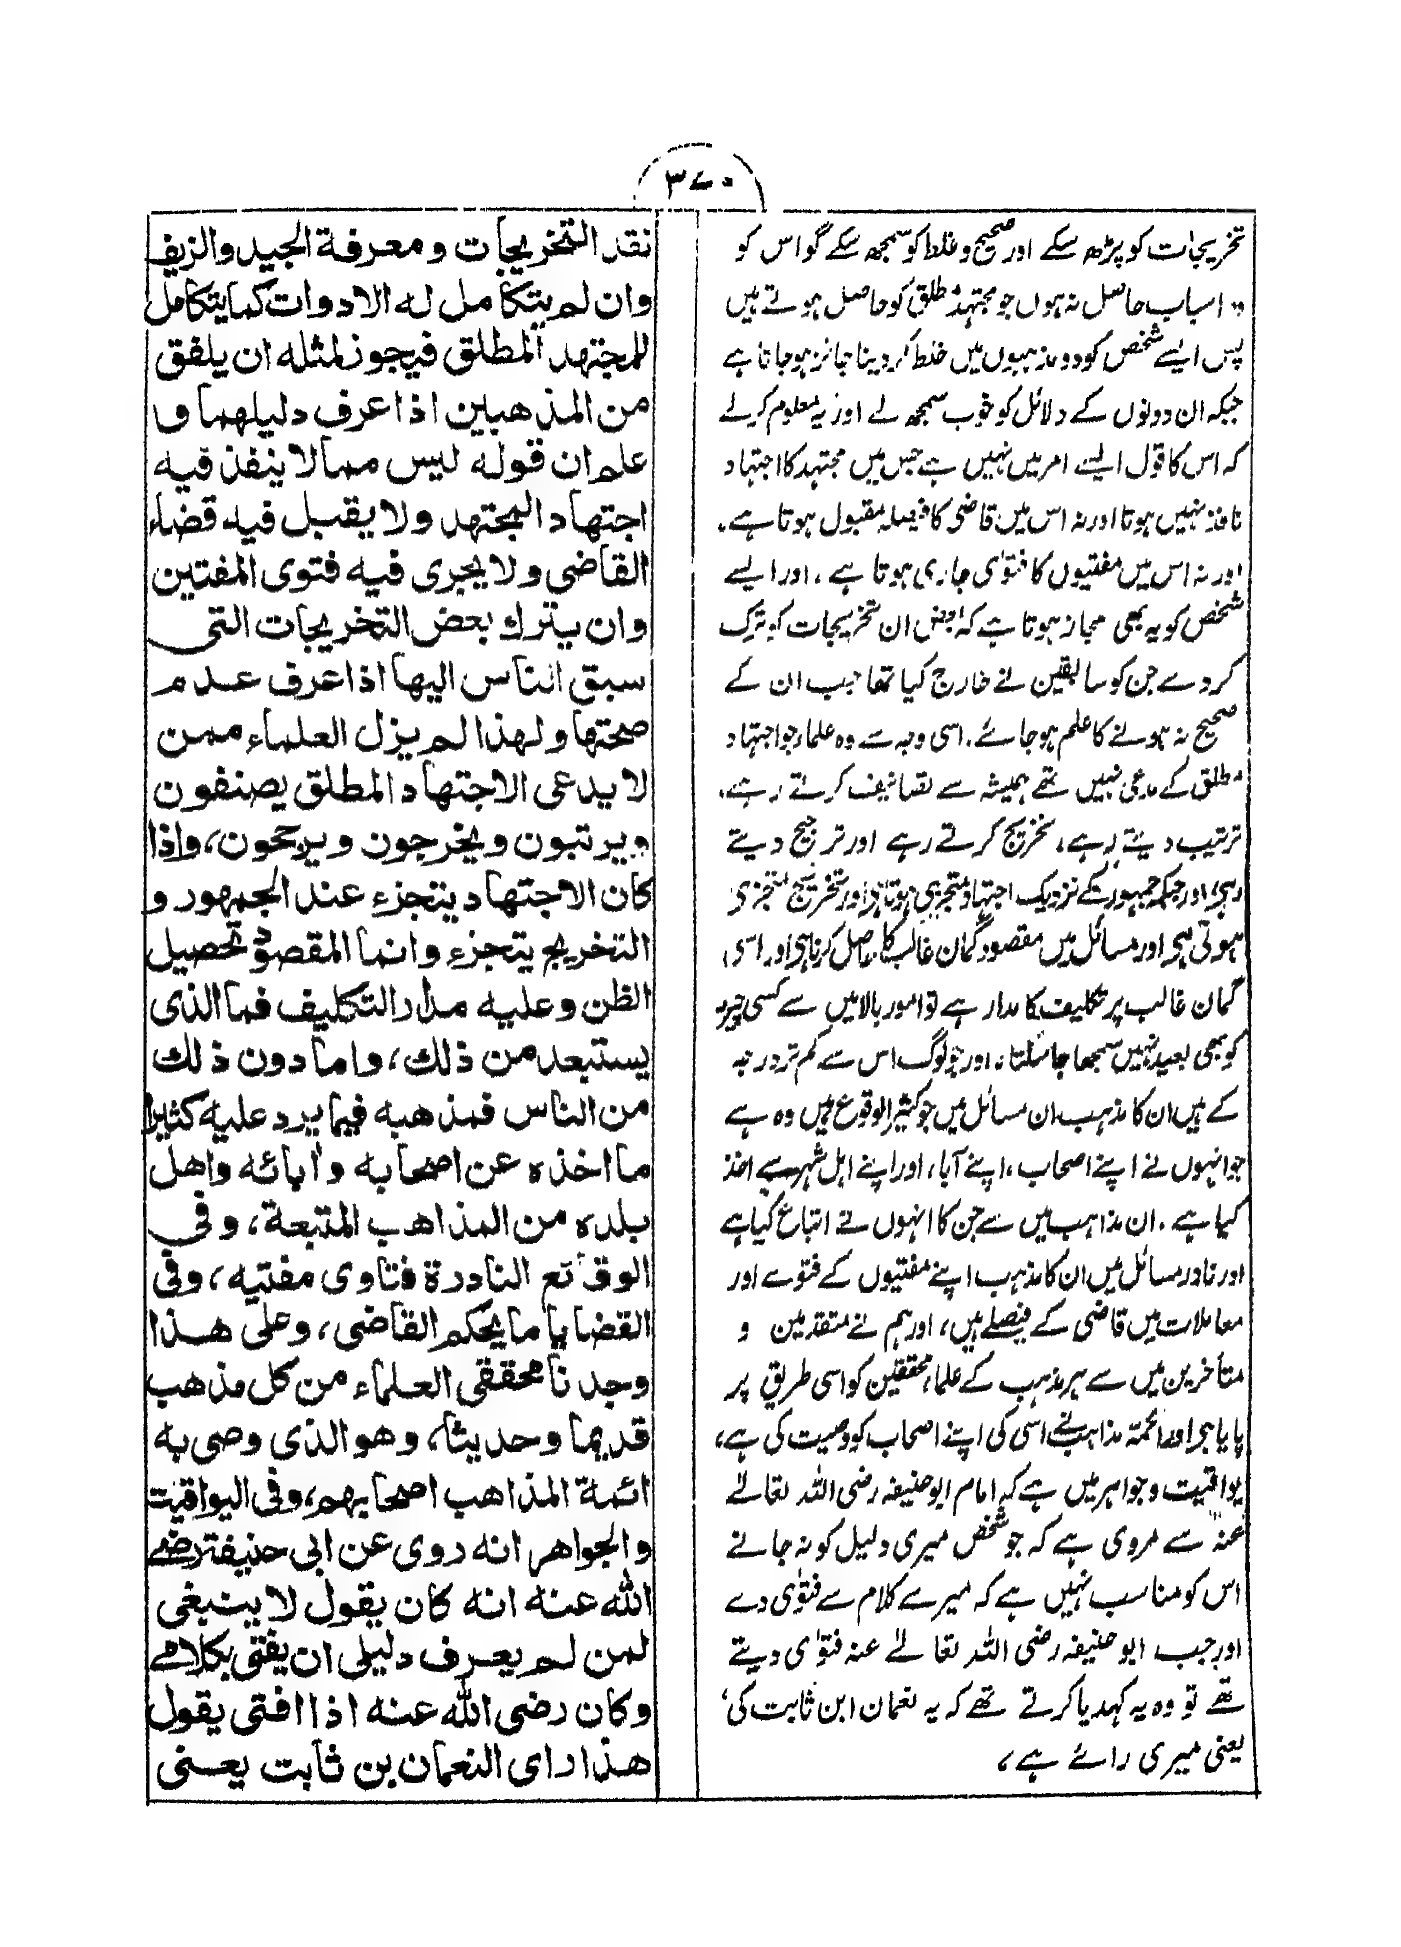 ۳۷۰
تخریجات کو پڑھ سکے اور صحیح و غلط کو سمجھ سکے گو اس کو
وہ اسباب حاصل نہ ہوں جو مجتہد مطلق کو حاصل ہوتے ہیں
پس ایسے شخص کو دو مذہبوں میں خلط کر دینا جائز ہو جاتا ہے
جبکہ ان دونوں کے دلائل کو خوب سمجھ لے اور یہ معلوم کر لے
کہ اس کا قول ایسے امر میں نہیں ہے جس میں مجتہد کا اجتہاد
نافذ نہیں ہوتا اور نہ اس میں قاضی کا فیصلہ مقبول ہوتا ہے،
اور نہ اس میں مفتیوں کا فتویٰ جاری ہوتا ہے، اور ایسے
شخص کو یہ بھی مجاز ہوتا ہے کہ بعض ان تخریجات کو ترک
کردے جن کو سابقین نے خارج کیا تھا جب ان کے
صحیح نہ ہونے کا علم ہو جائے، اسی وجہ سے وہ علماء جو اجتہاد
مطلق کے مدعی نہیں تھے ہمیشہ سے تصانیف کرتے رہے،
ترتیب دیتے رہے، تخریج کرتے رہے اور ترجیح دیتے
رہی، اور جبکہ جمہور کے نزدیک اجتہاد متجزی ہوتا ہی اور تخریج متجزی
ہوتی ہی اور مسائل میں مقصود گمان غالب کا حاصل کرنا ہی اور اسی
گمان غالب پر تکلیف کا مدار ہے تو امور بالا میں سے کسی چیز
کو بھی بعید نہیں سمجھا جا سکتا، اور جو لوگ اس سے کم تر درجہ
کے ہیں ان کا مذہب ان مسائل میں جو کثیر الوقوع ہیں وہ ہے
جو انہوں نے اپنے اصحاب، اپنے آبا، اور اپنے اہل شہر سے اخذ
کیا ہے، ان مذاہب میں سے جن کا انہوں نے اتباع کیا ہے
اور نادر مسائل میں ان کا مذہب اپنے مفتیوں کے فتوے اور
معاملات میں قاضی کے فیصلے ہیں، اور ہم نے متقدمین و
متأخرین میں سے ہر مذہب کے علماء محققین کو اسی طریق پر
پایا ہی اور ائمۂ مذاہب نے اسی کی اپنے اصحاب کو وصیت کی ہے،
یواقیت و جواہر میں ہے کہ امام ابو حنیفہ رضی اللہ تعالےٰ
عنہ سے مروی ہے کہ جو شخص میری دلیل کو نہ جانے
اس کو مناسب نہیں ہے کہ میرے کلام سے فتویٰ دے
اور جب ابو حنیفہ رضی اللہ تعالےٰ عنہ فتویٰ دیتے
تھے تو وہ یہ کہدیا کرتے تھے کہ یہ نعمان ابن ثابت کی،
یعنی میری رائے ہے،
نقد التخريجات ومعرفة الجيد والزيف
وان لم يتكامل له الادوات كما يتكامل
للمجتهد المطلق فيجوز لمثله ان يلفق
من المذهبين اذا عرف دليلهما و
علم ان قوله ليس مما لا ينفذ فيه
اجتهاد المجتهد ولا يقبل فيه قضاء
القاضى ولا يجرى فيه فتوى المفتين
وان يترك بعض التخريجات التى
سبق الناس اليها اذا عرف عدم
صحتها ولهذا لم يزل العلماء ممن
لا يدعى الاجتهاد المطلق يصنفون
ويرتبون ويخرجون ويرجحون، واذا
كان الاجتهاد يتجزء عند الجمهور و
التخريج يتجزء وانما المقصود تحصيل
الظن وعليه مدار التكليف فما الذى
يستبعد من ذلك، واما دون ذلك
من الناس فمذهبه فيما يرد عليه كثيرا
ما اخذه عن اصحابه وابائه واهل
بلده من المذاهب المتبعة، وفى
الوقائع النادرة فتاوى مفتيه، وفى
القضايا ما يحكم القاضى، وعلى هذا
وجدنا محققى العلماء من كل مذهب
قديما وحديثا، وهو الذى وصى به
ائمة المذاهب اصحابهم، وفى اليواقيت
والجواهر انه روى عن ابى حنيفة رضى
الله عنه انه كان يقول لا ينبغى
لمن لم يعرف دليلى ان يفتى بكلامى
وكان رضى الله عنه اذا افتى يقول
هذا راى النعمان بن ثابت يعنى